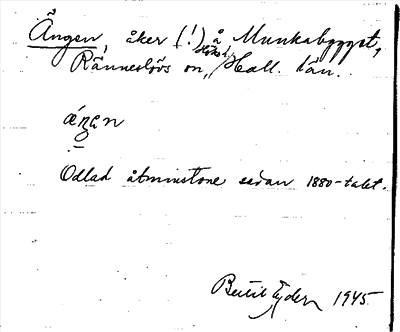 Ängen, åker (!) å Munkabygget,
Ränneslövs sn, Höks hd, Hall. län.
áŋən
Odlad åtminstone sedan 1880-talet.
Bertil Ejder 1945